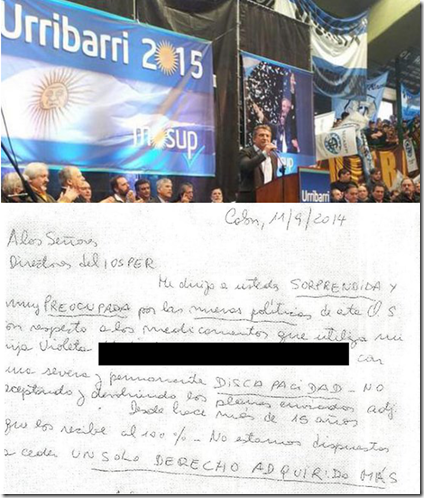 Urribarri 2015
mosup
Urribarri
Colon, 11/9/2014
A los Señores
Directores del IOSPER
Me dirijo a ustedes SORPRENDIDA y
muy PREOCUPADA por las nuevas políticas de esta O S
on respecto a los medicamentos que utiliza mi
ija Violeta
con
una severa y permanente DISCAPACIDAD - NO
aceptando y devolviendo los planes enviados adj.
Desde hace más de 15 años
que los recibe al 100% - No estamos dispuestos
a ceder UN SOLO DERECHO ADQUIRIDO MÁS